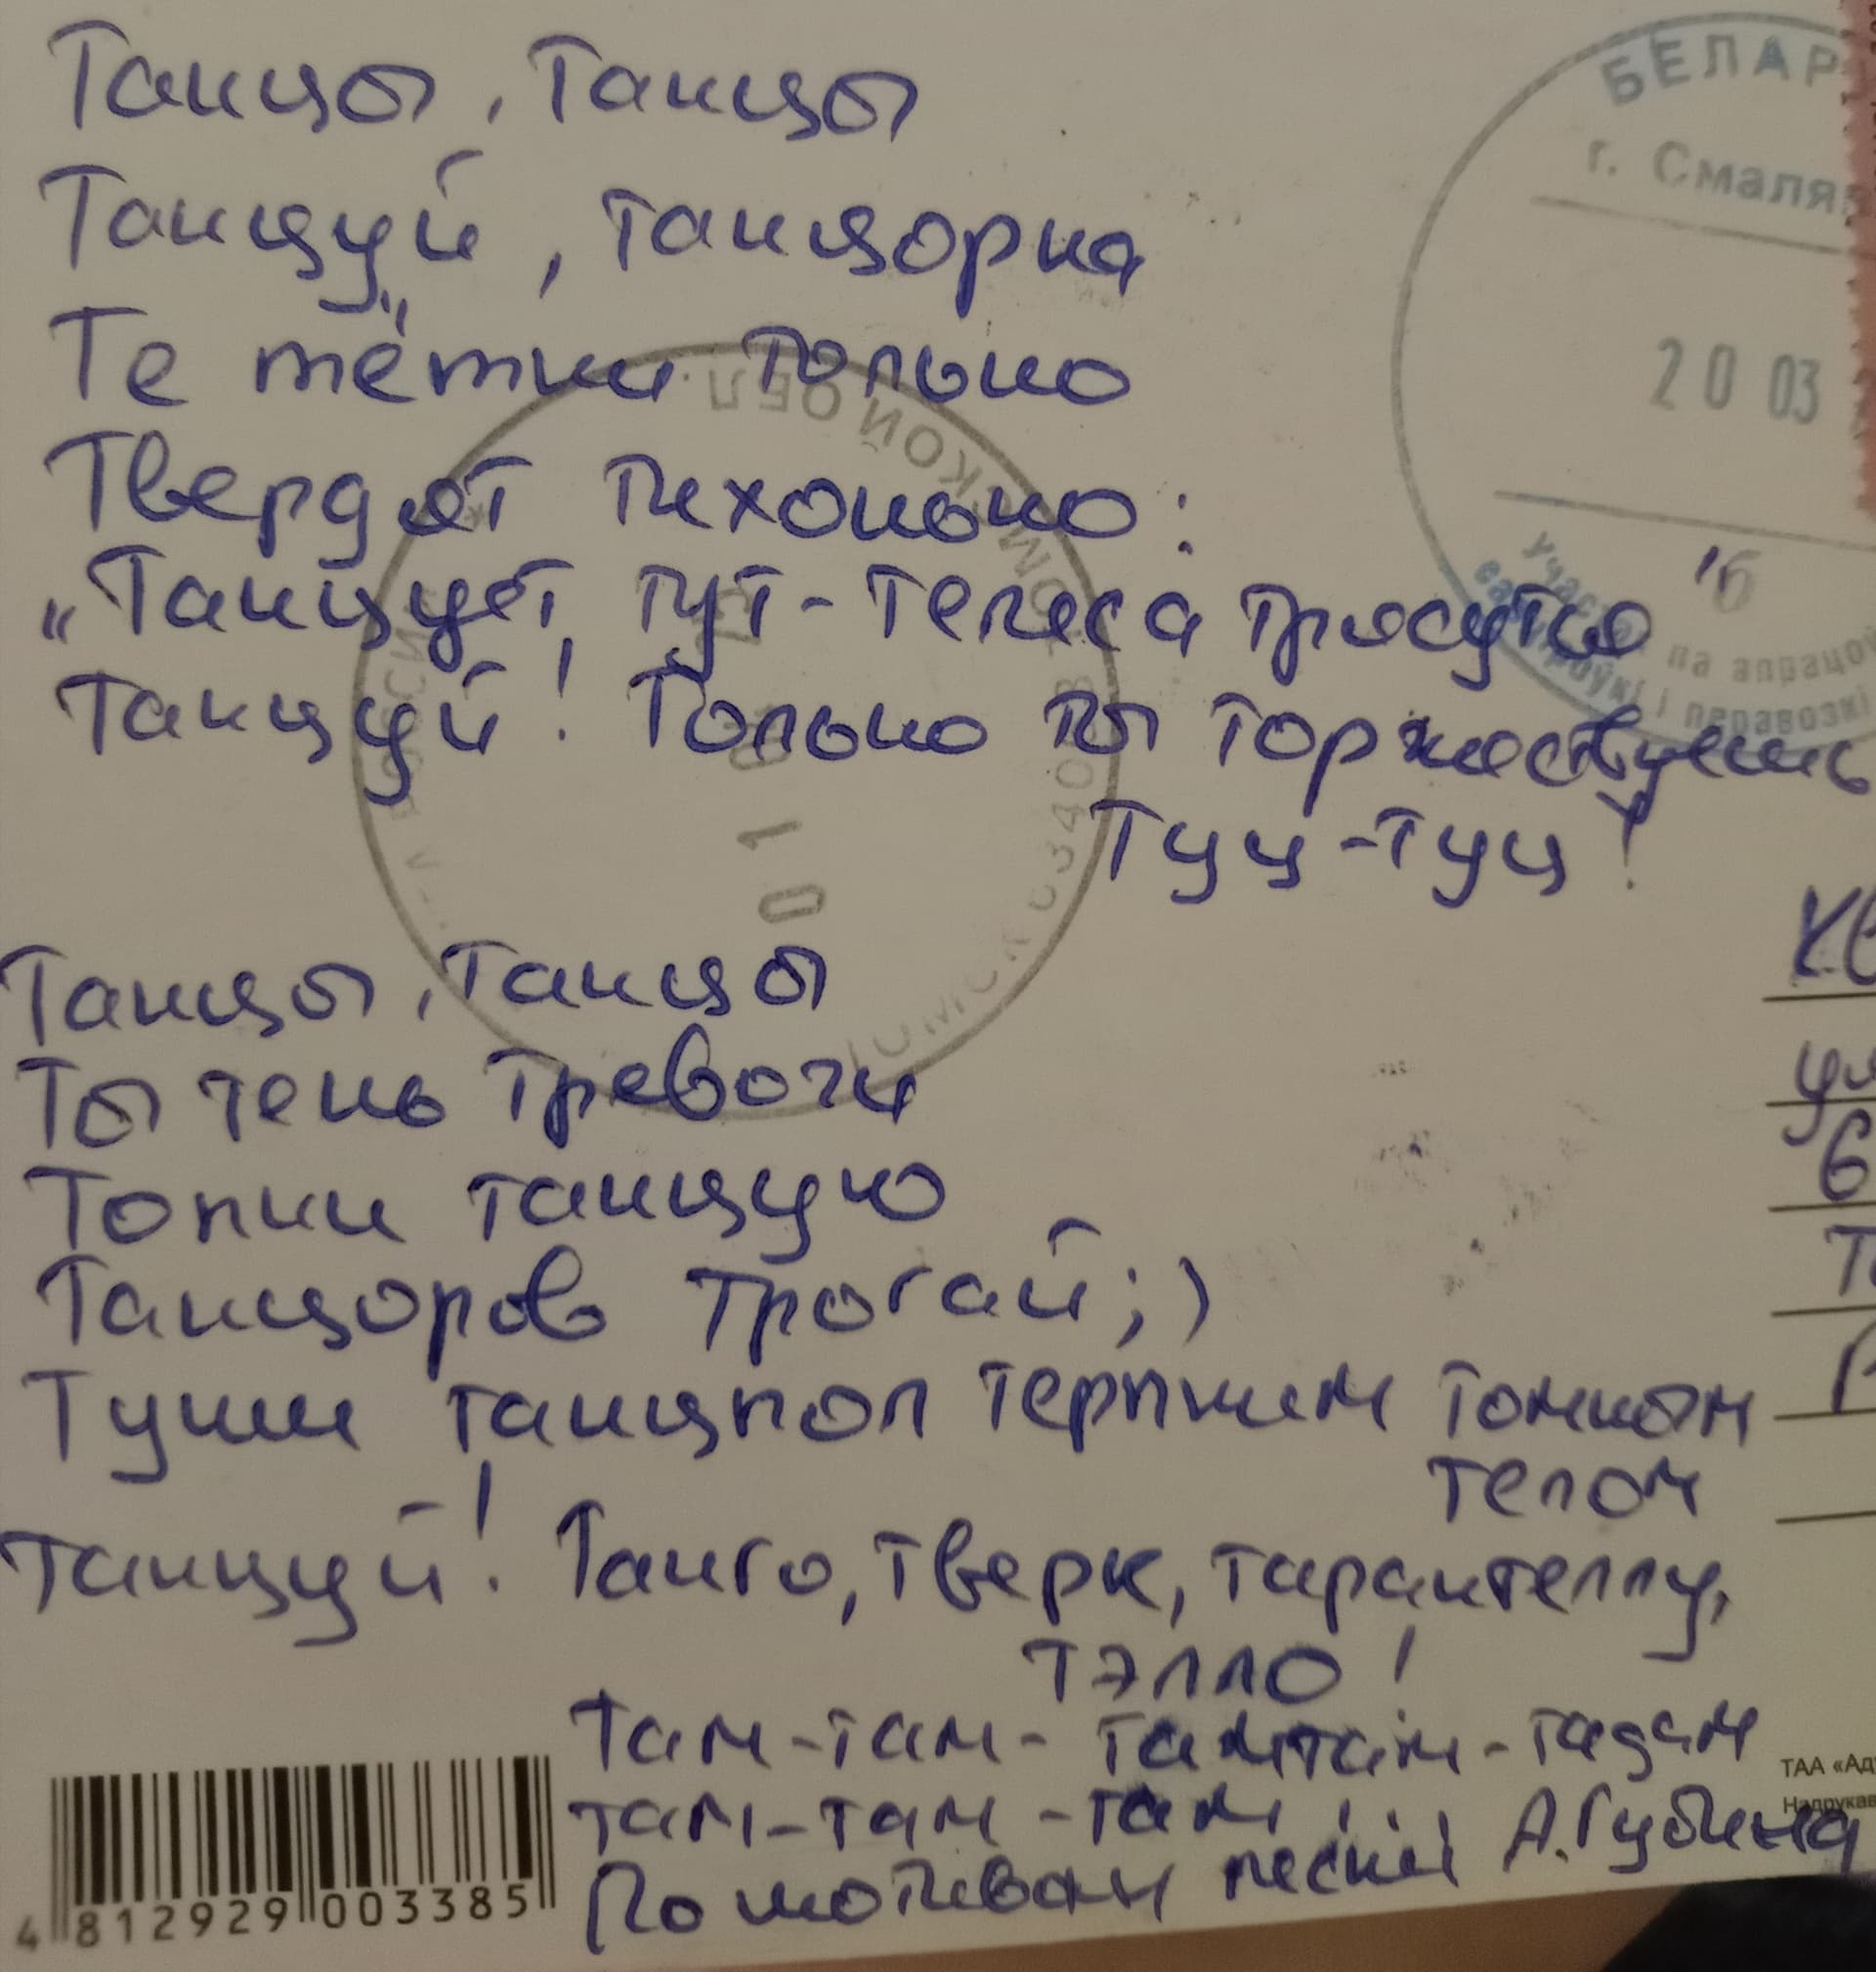 Танцы, Танцы
Танцуй, танцорка
Те тётки только
Твердят тихонько:
„Танцует, тут-телеса трясутся
Танцуй! Только ты торжествуешь
Туц-туц!
Танцы, танцы
Ты тень тревоги
Топни танцую
Танцоров трогай;)
Туши танцпол терпким томным
телом
Танцуй! Танго, тверк, тарантеллу,
тэлло!
Там-там-тамтам-тадам
там-там-там...
По мотивам песни А.Губина
БЕЛАР
г. Смаляв
20 03
па апрацоў
і перавозкі
СКОЙ ОБЛ.
01
634
ул
6
ТАА «Ад
Надрукав
4 812929 003385